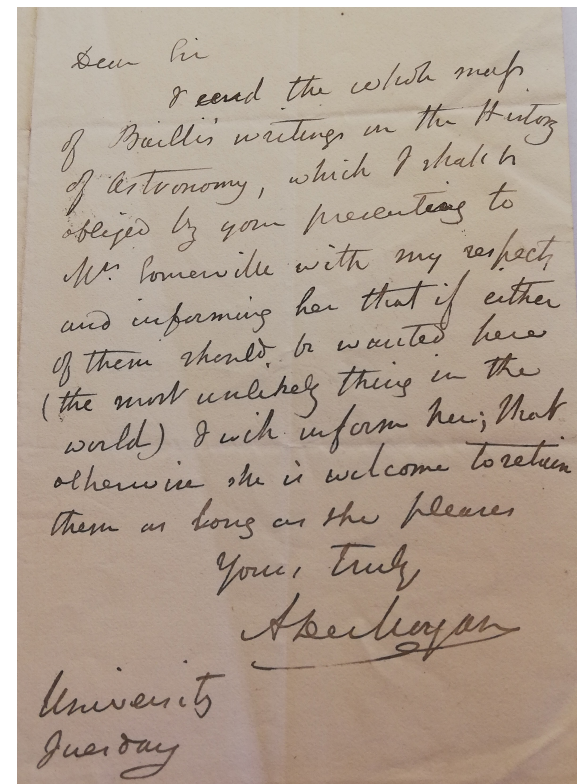 Dear Sir
I send the whole mass
of Bailli's writings on the History
of Astronomy, which I shall be
obliged by your presenting to
Mrs Somerville with my respects,
and informing her that if either
of them should be wanted here
(the most unlikely thing in the
world) I will inform her; that
otherwise she is welcome to retain
them as long as she pleases
Yours truly
A De Morgan
University
Tuesday